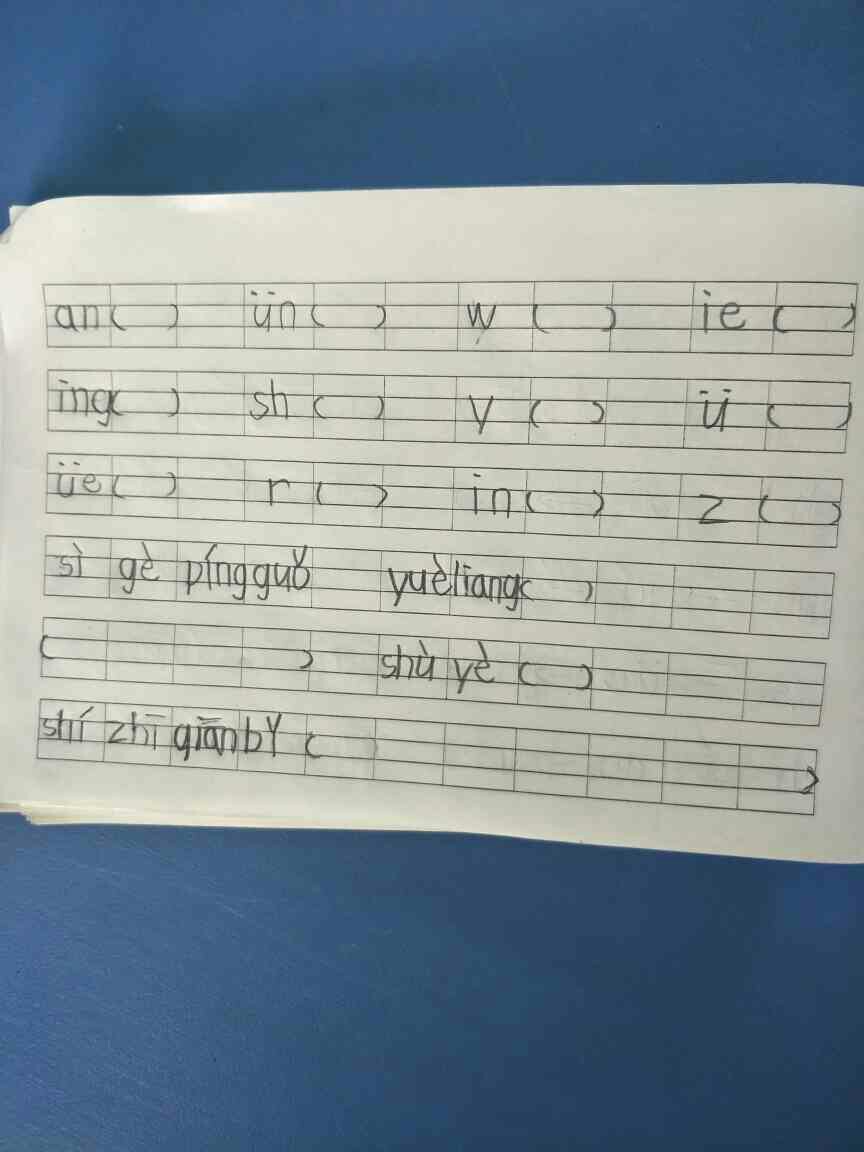 an( ) ün( ) w ( ) ie ( )
ing( ) sh ( ) y ( ) ü ( )
üe( ) r ( ) in( ) z ( )
sì gè píngguǒ yuèliang( )
( ) shù yè ( )
shí zhī qiānbǐ ( )